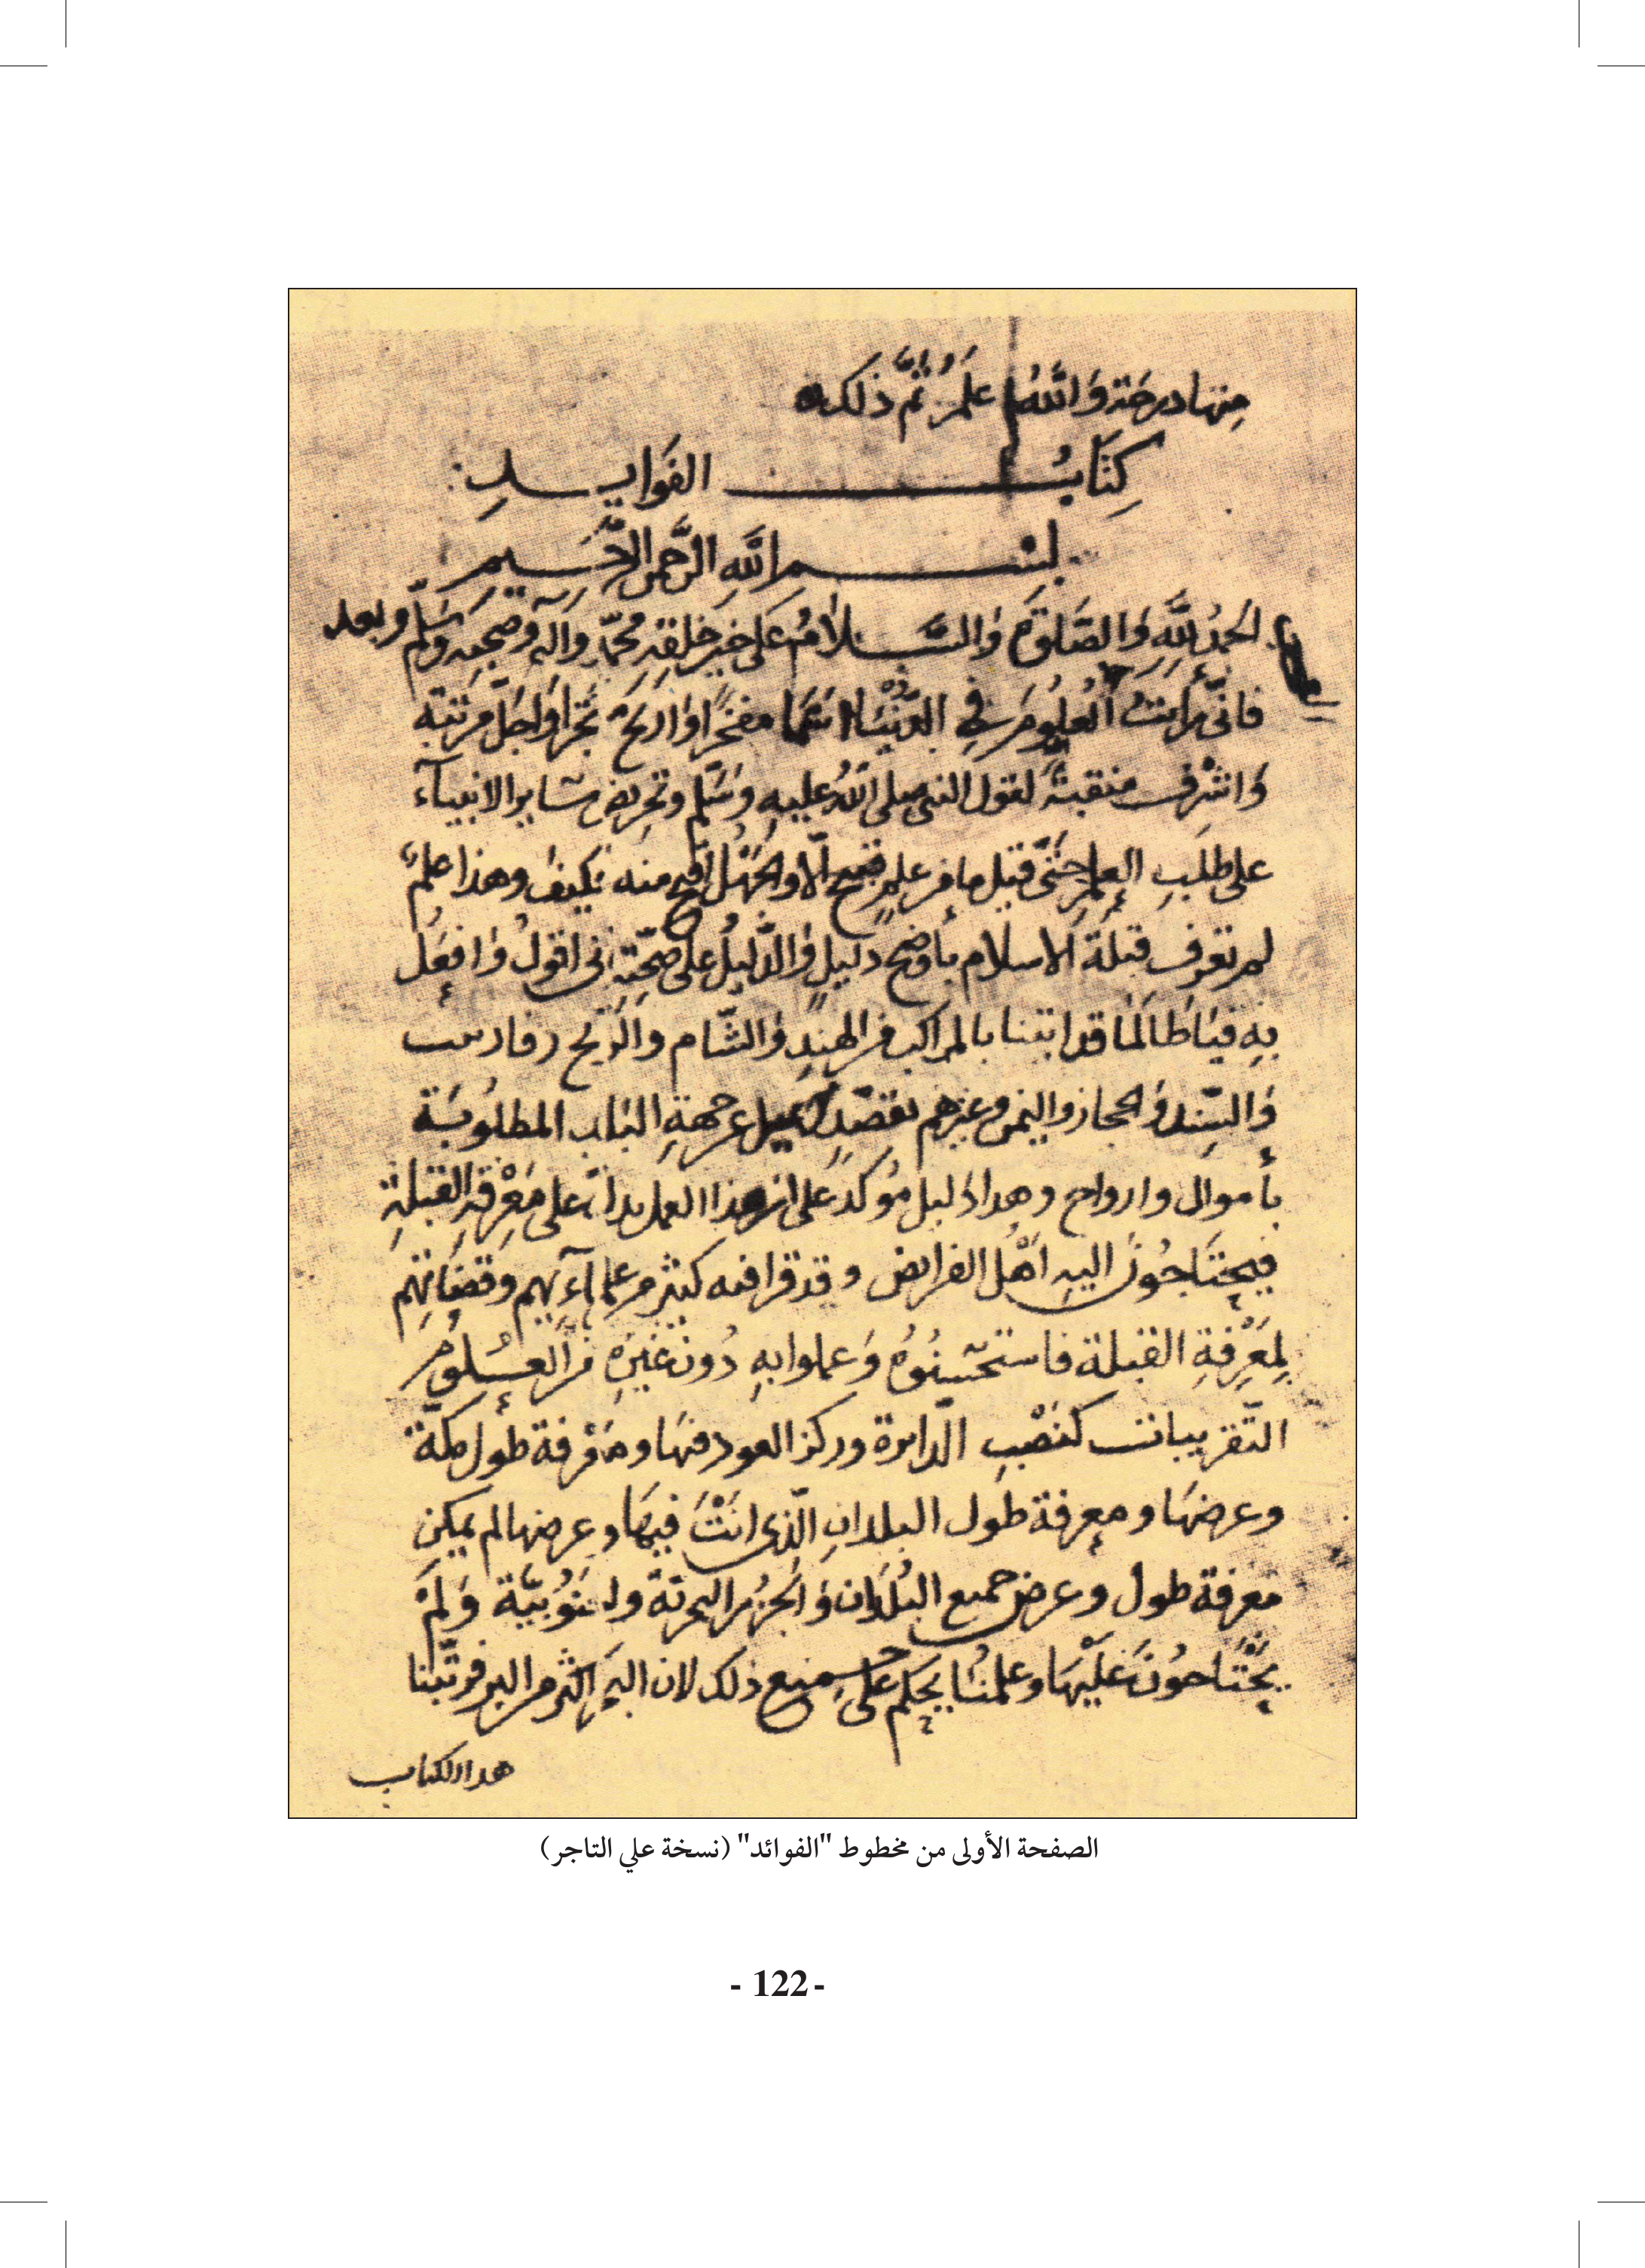 منها درجة والله اعلم ثم ذلك
كِتَابُ الفَوَايد
بسم اللهِ الرَّحمن الرَّحيم
الحمدُ للَّهِ وَالصَّلوةُ وَالسَّلامُ عَلى خيرِ خلقِهِ محمّدٍ وَالهِ وَصَحبِه وَسَلّم وبعد
فانّى رايتُ العُلومَ فِي الدُّنْيَا اسما مفخرًا وَاربَحَ تَجرًا وَاجلَّ مرتبة
وَاشرف منقبةً لقول النبى صلى اللهُ عليه وَسَلّم وتحريض سَاير الانبيآء
على طلَبِ العِلمِ حَتَّى قيل ما من علمٍ قبيح الّا والجهْلُ اقبح منه فكيفَ وهذا علمٌ
لم تعرف قبلةَ الاسلام باوضح دليلٍ وَالدَّليلُ عَلى صحّتِه انى اقولُ وَافعلُ
بهِ فيَا طَالَمَا قد اتينا بالمراكب من الهِندِ وَالشّام والزنج وفارس
وَالسِّند وَالحجاز واليمن وغيرهم بقصْدٍ لم عن جهةِ البَاب المطلُوبَة
بأموال وارواح وهدا دليل مؤكد عَلى ان هذا العمل على مَعْرِفةِ القبلةِ
فيحتَاجُونَ اليهِ اَهْلُ الفرايض وقد قرا فيه كثير من علمآءِيهم وقضَاتهم
لِمَعْرِفَةِ القبلة فاستحسَنُوهُ وَعملوا بهِ دُون غَيرِهِ من العُلومِ
التّقريبات كنَصْبِ الدّايرة وركز العود فيهَا ومعرفة طول مكّة
وعرضهَا ومعرفة طول البلدانِ الّذى انتَ فيهَا وعرضها لم يمكن
معرفة طول وعرض جميع البُلدَان وَالجُزُر البحريّة وَلَمْ
يَحْتَاجُونَ عَلَيْهَا وعلمنَا يحكم عَلى جميع ذلك لان البحرَ اكثر من البر فرتّبنا
هدا الكتاب
الصفحة الأولى من مخطوط "الفوائد" (نسخة علي التاجر)
- 122 -